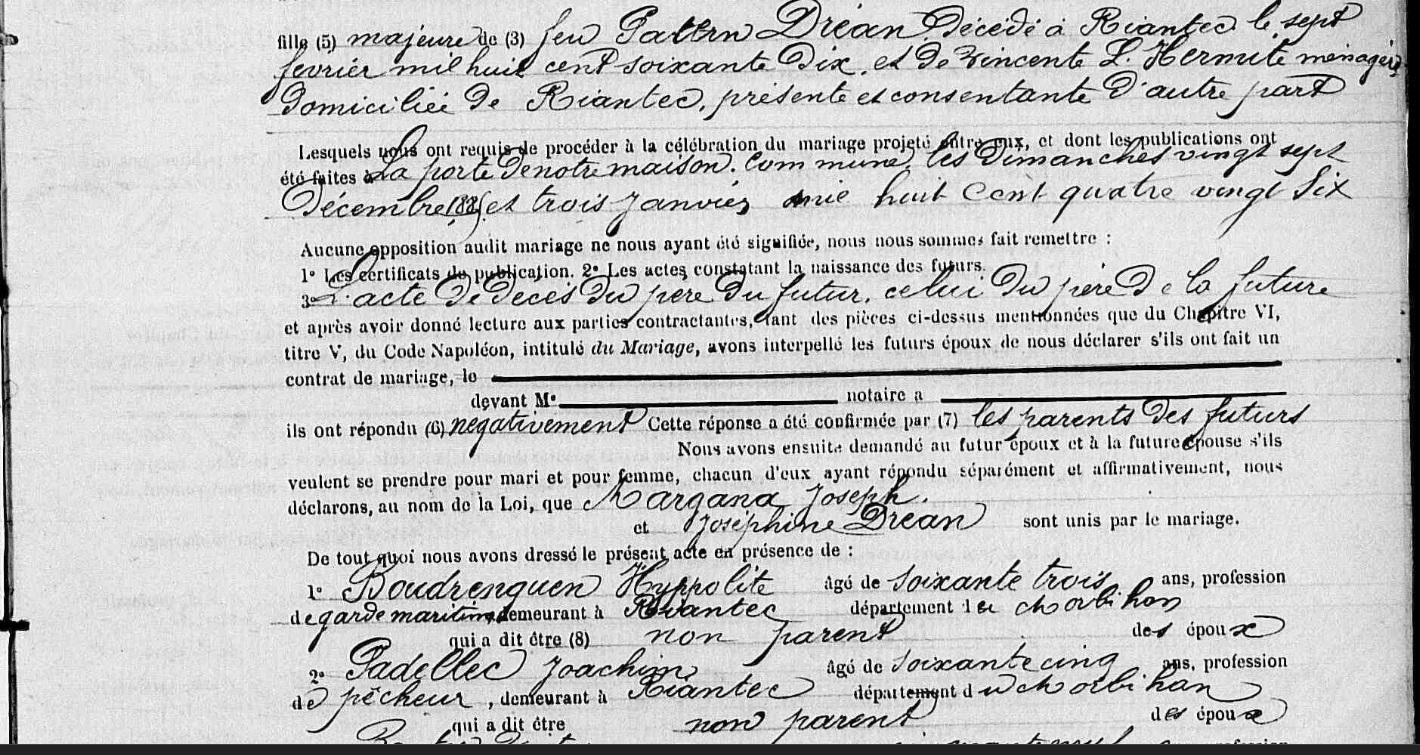 fille (5) majeure de (3) feu Patern Dréan décédé à Riantec le sept
février mil huit cent soixante dix, et de Vincente L'Hermite ménagère
domiciliée de Riantec, présente et consentante d'autre part
Lesquels nous ont requis de procéder à la célébration du mariage projeté entre eux, et dont les publications ont
été faites à La porte de notre maison Commune, les Dimanches vingt sept
Décembre 1885 et trois Janvier mil huit cent quatre vingt six
Aucune opposition audit mariage ne nous ayant été signifiée, nous nous sommes fait remettre :
1° Les certificats de publication. 2° Les actes constatant la naissance des futurs.
3° L'acte de décès du père du futur, celui du père de la future
et après avoir donné lecture aux parties contractantes, tant des pièces ci-dessus mentionnées que du Chapitre VI,
titre V, du Code Napoléon, intitulé du Mariage, avons interpellé les futurs époux de nous déclarer s'ils ont fait un
contrat de mariage, le
devant Me notaire a
ils ont répondu (6) négativement Cette réponse a été confirmée par (7) les parents des futurs
Nous avons ensuite demandé au futur époux et à la future épouse s'ils
veulent se prendre pour mari et pour femme, chacun d'eux ayant répondu séparément et affirmativement, nous
déclarons, au nom de la Loi, que Margana Joseph.
et Joséphine Dréan sont unis par le mariage.
De tout quoi nous avons dressé le présent acte en présence de :
1° Boudrenguen Hyppolite âgé de soixante trois ans, profession
de garde maritime, demeurant à Riantec département du Morbihan
qui a dit être (8) non parent des époux
2° Padellec Joachim âgé de soixante cinq ans, profession
de pêcheur, demeurant à Riantec département du Morbihan
qui a dit être non parent des époux